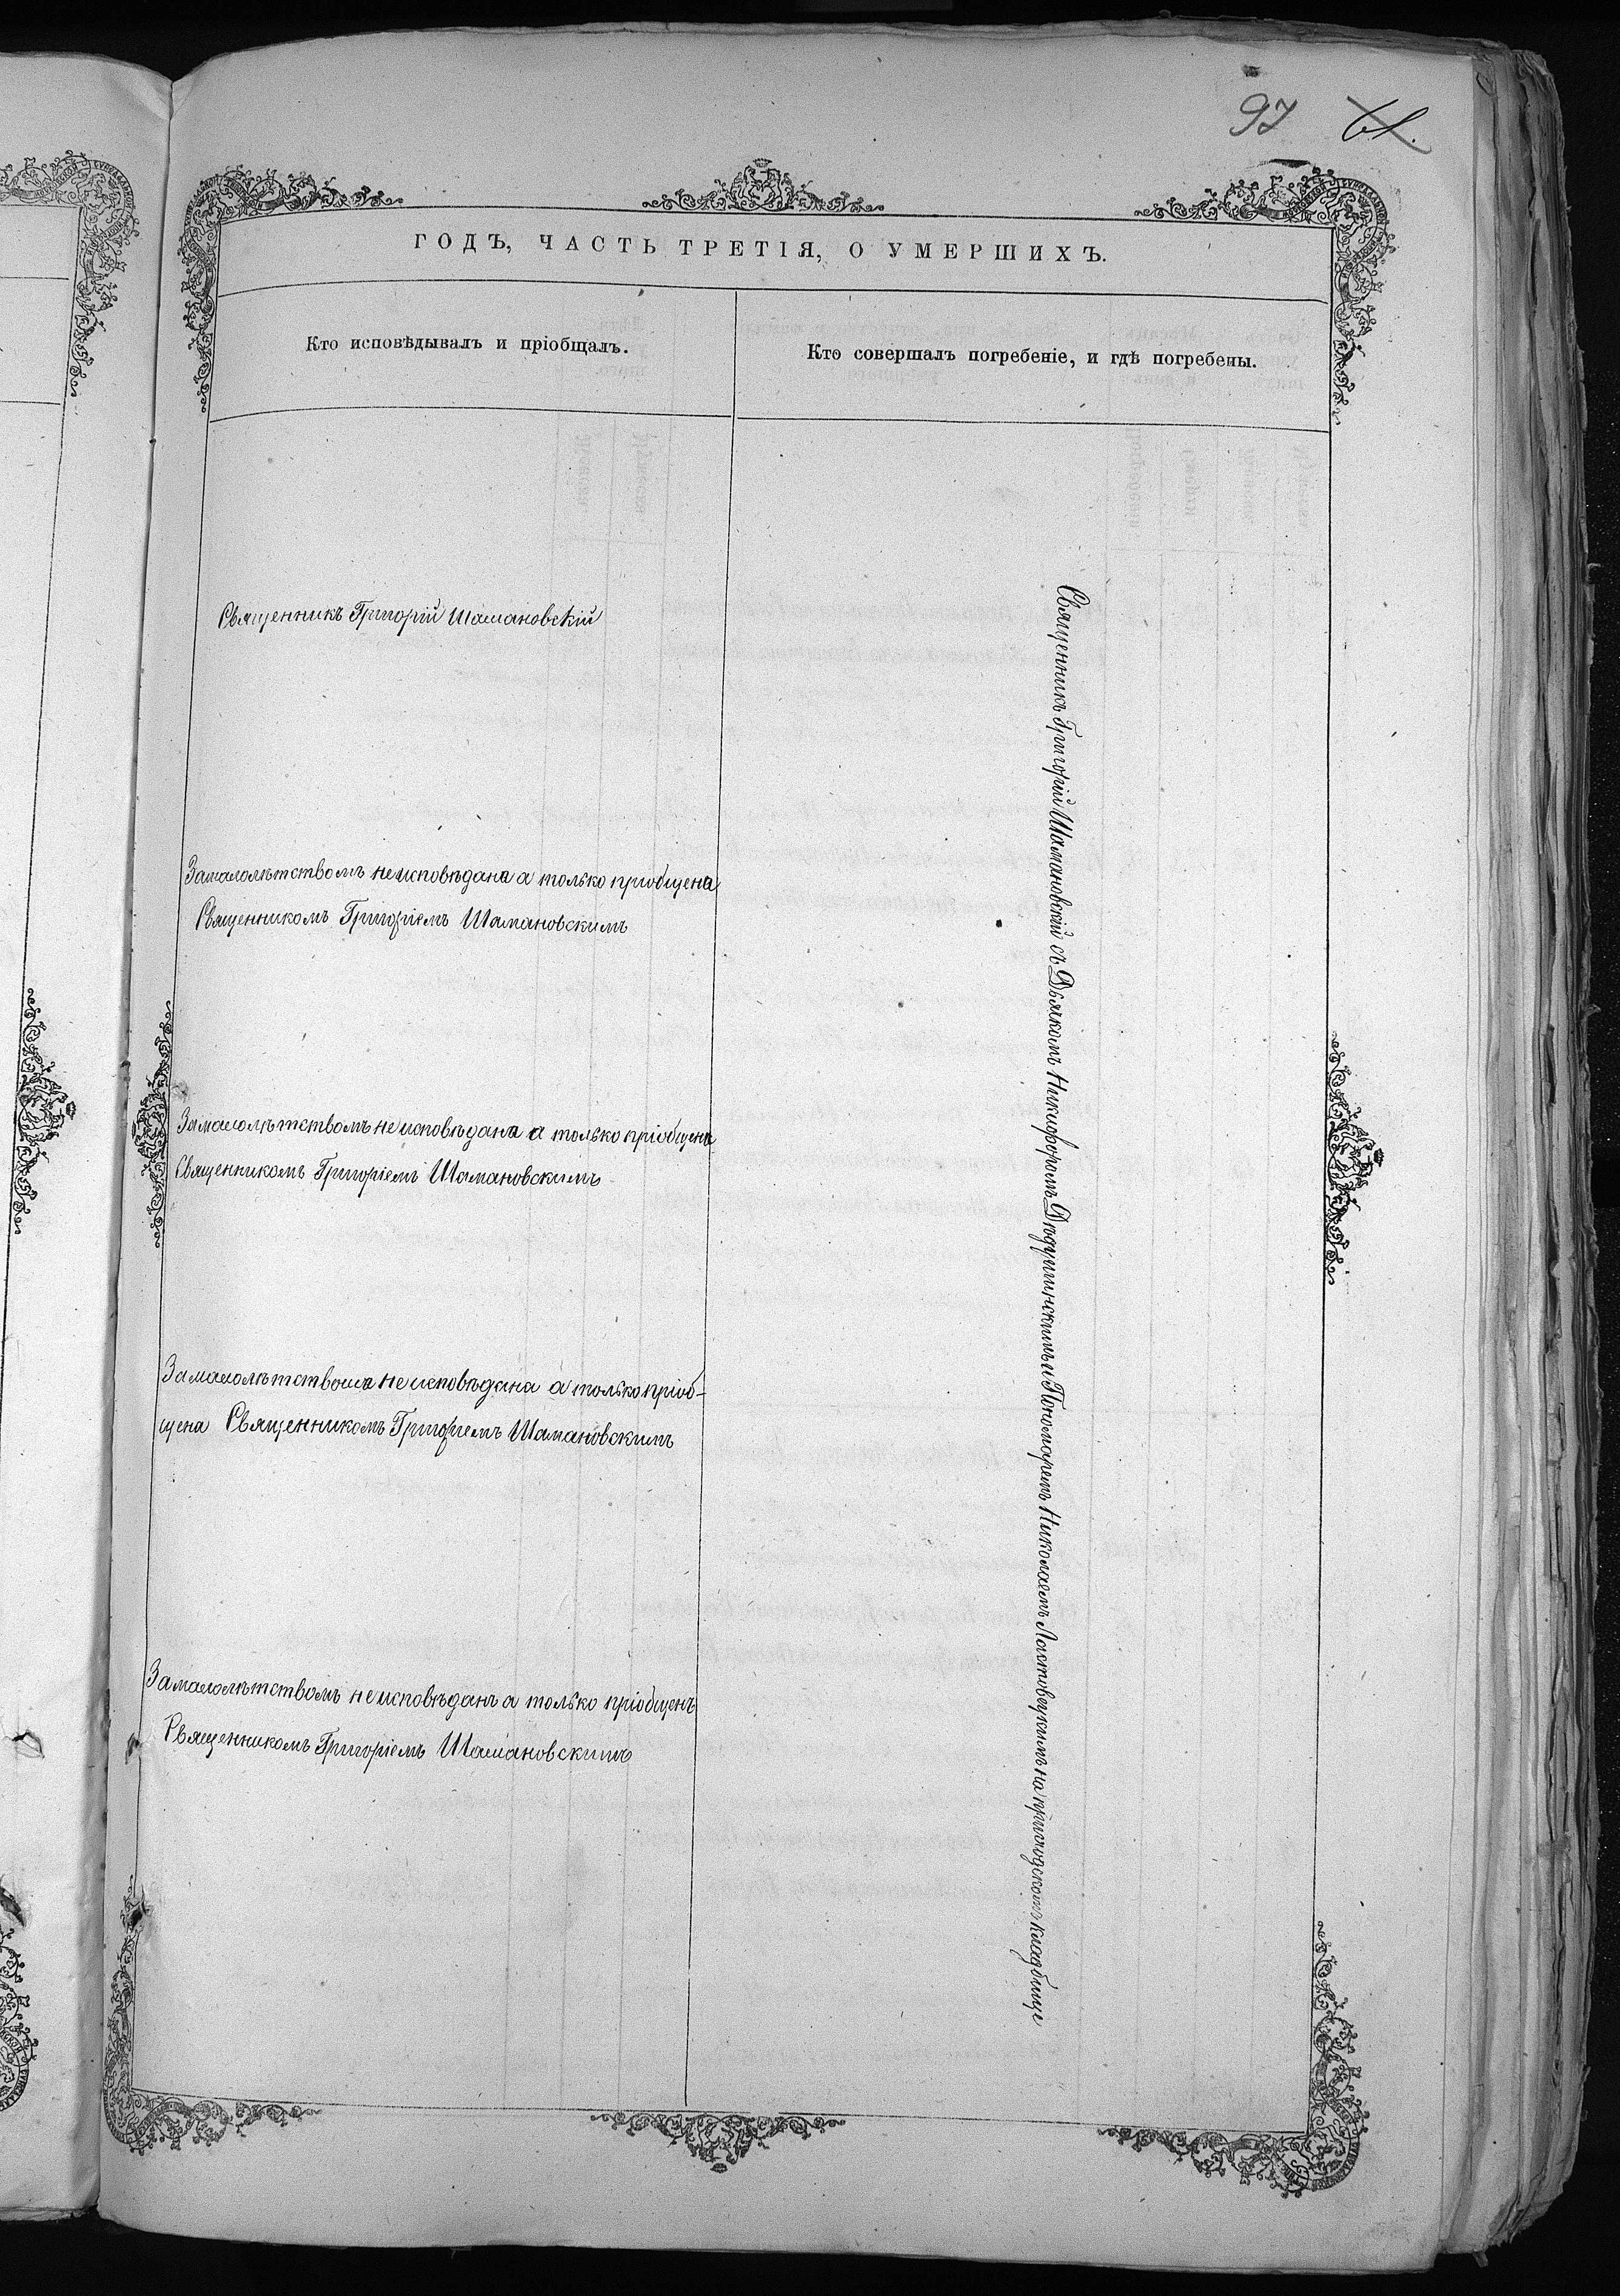 97
ГОДЪ, ЧАСТЬ ТРЕТІЯ, О УМЕРШИХЪ.
Кто исповѣдывалъ и пріобщалъ.
Кто совершалъ погребеніе, и гдѣ погребены.
Священникъ Григорій Шамановскій
За малолѣтствомъ не исповѣдана а только пріобщена
Священникомъ Григоріемъ Шамановскимъ
За малолѣтствомъ не исповѣдана а только пріобщена
Священникомъ Григоріемъ Шамановскимъ
За малолѣтствомъ не исповѣдана а только пріоб-
щена Священникомъ Григоріемъ Шамановскимъ
За малолѣтствомъ не исповѣданъ а только пріобщенъ
Священникомъ Григоріемъ Шамановскимъ
Священникъ Григорій Шамановскій съ Дьякомъ Никифоромъ Дѣдушинскимъ и Пономаремъ Николаемъ Ластовецкимъ на приходскомъ кладбище